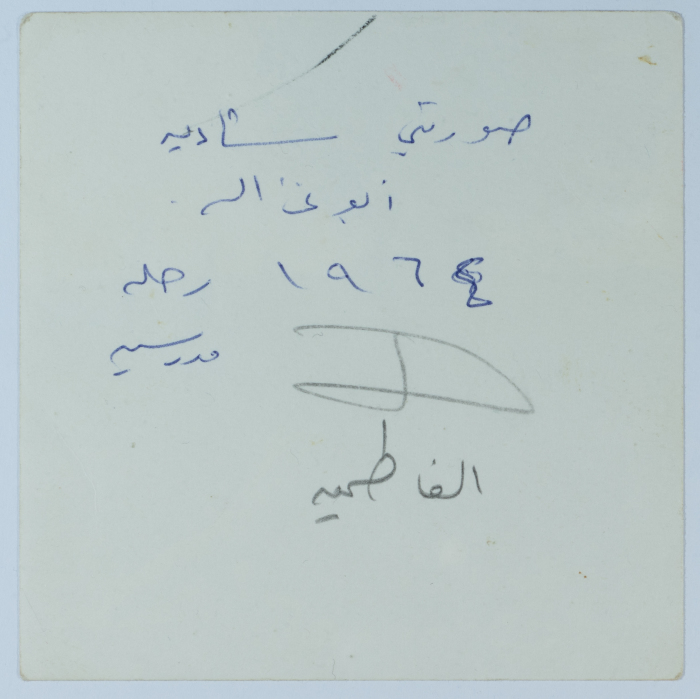 صورتي شاديه
ابو غزاله
١٩٦٤ رحله
مدرسيه
الفاطميه